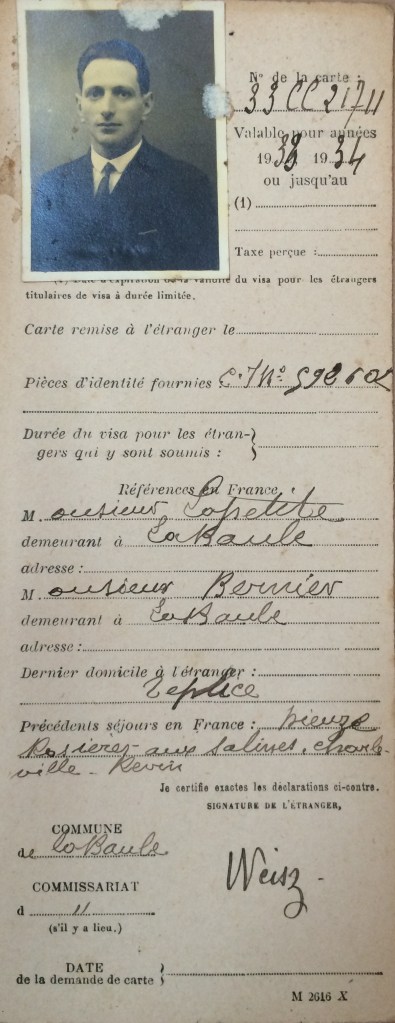 N° de la carte :
33 CC 21711
Valable pour années
1933 1934
ou jusqu'au
(1)
Taxe perçue :
(1) Date d'expiration de la validité du visa pour les étrangers
titulaires de visa à durée limitée.
Carte remise à l'étranger le
Pièces d'identité fournies : C.I N° 592602
Durée du visa pour les étran-
gers qui y sont soumis :
Références en France
M. onsieur Lopetite
demeurant à La Baule
adresse :
M. onsieur Bernier
demeurant à La Baule
adresse :
Dernier domicile à l'étranger :
Teplice
Précédents séjours en France :
Rosieres aux Salines, Charle-
ville - Revin
Je certifie exactes les déclarations ci-contre.
SIGNATURE DE L'ÉTRANGER,
COMMUNE
de La Baule
Weisz
COMMISSARIAT
d "
(s'il y a lieu.)
DATE
de la demande de carte
M 2616 X